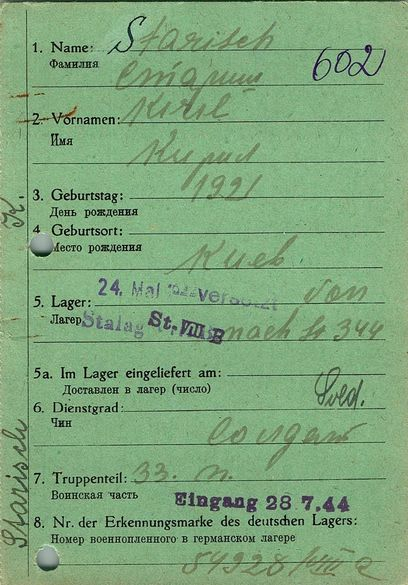 1. Name: Starisch
Фамилия
602
Стариш
2. Vornamen: Kiril
Имя
Кирил
3. Geburtstag: 1921
День рождения
4. Geburtsort:
Место рождения
Киев
24. Mai versetzt von
5. Lager:
Лагерь Stalag St. VIII B nach St 344
5a. Im Lager eingeliefert am:
Доставлен в лагерь (число)
Sold.
6. Dienstgrad:
Чин
Солдат
7. Truppenteil: 33. п.
Воинская часть
Eingang 28.7.44
8. Nr. der Erkennungsmarke des deutschen Lagers:
Номер военнопленного в германском лагере
54928/VIII a
Starisch K.